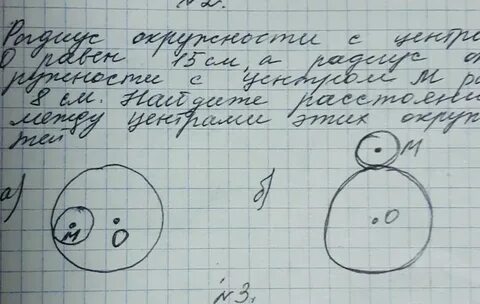 №2.
Радиус окружности с центр
О равен 15 см, а радиус о
ружности с центром М ра
8 см. Найдите расстояни
между центрами этих окруж
тей
М
а)
б)
М
О
О
№3.